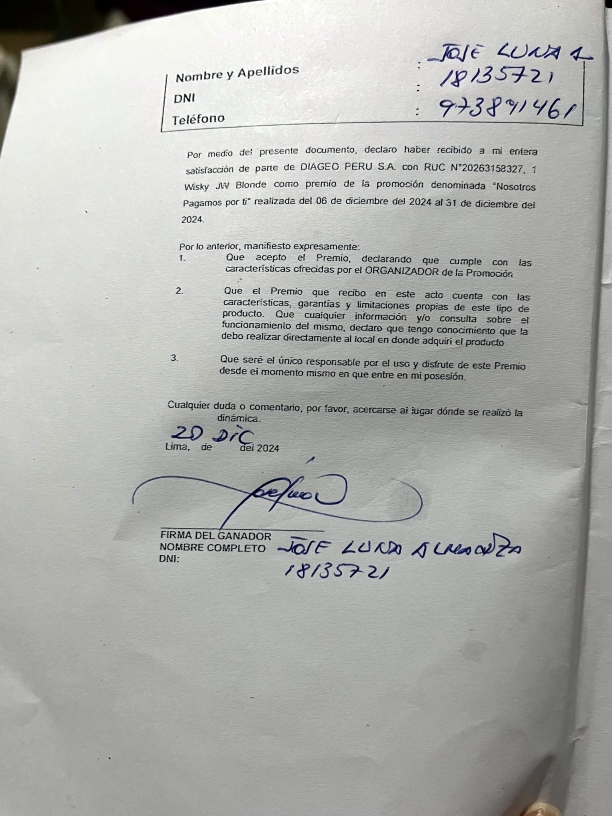 Nombre y Apellidos : JOSE LUNA A
DNI : 18135721
Teléfono : 973891461
Por medio del presente documento, declaro haber recibido a mi entera
satisfacción de parte de DIAGEO PERU S.A. con RUC N°20263158327, 1
Wisky JW Blonde como premio de la promoción denominada "Nosotros
Pagamos por ti" realizada del 06 de diciembre del 2024 al 31 de diciembre del
2024.
Por lo anterior, manifiesto expresamente:
1. Que acepto el Premio, declarando que cumple con las
características ofrecidas por el ORGANIZADOR de la Promoción
2. Que el Premio que recibo en este acto cuenta con las
características, garantías y limitaciones propias de este tipo de
producto. Que cualquier información y/o consulta sobre el
funcionamiento del mismo, declaro que tengo conocimiento que la
debo realizar directamente al local en donde adquirí el producto
3. Que seré el único responsable por el uso y disfrute de este Premio
desde el momento mismo en que entre en mi posesión.
Cualquier duda o comentario, por favor, acercarse al lugar dónde se realizó la
dinámica.
20 DIC
Lima, de del 2024
FIRMA DEL GANADOR
NOMBRE COMPLETO JOSE LUNA
DNI: 18135721